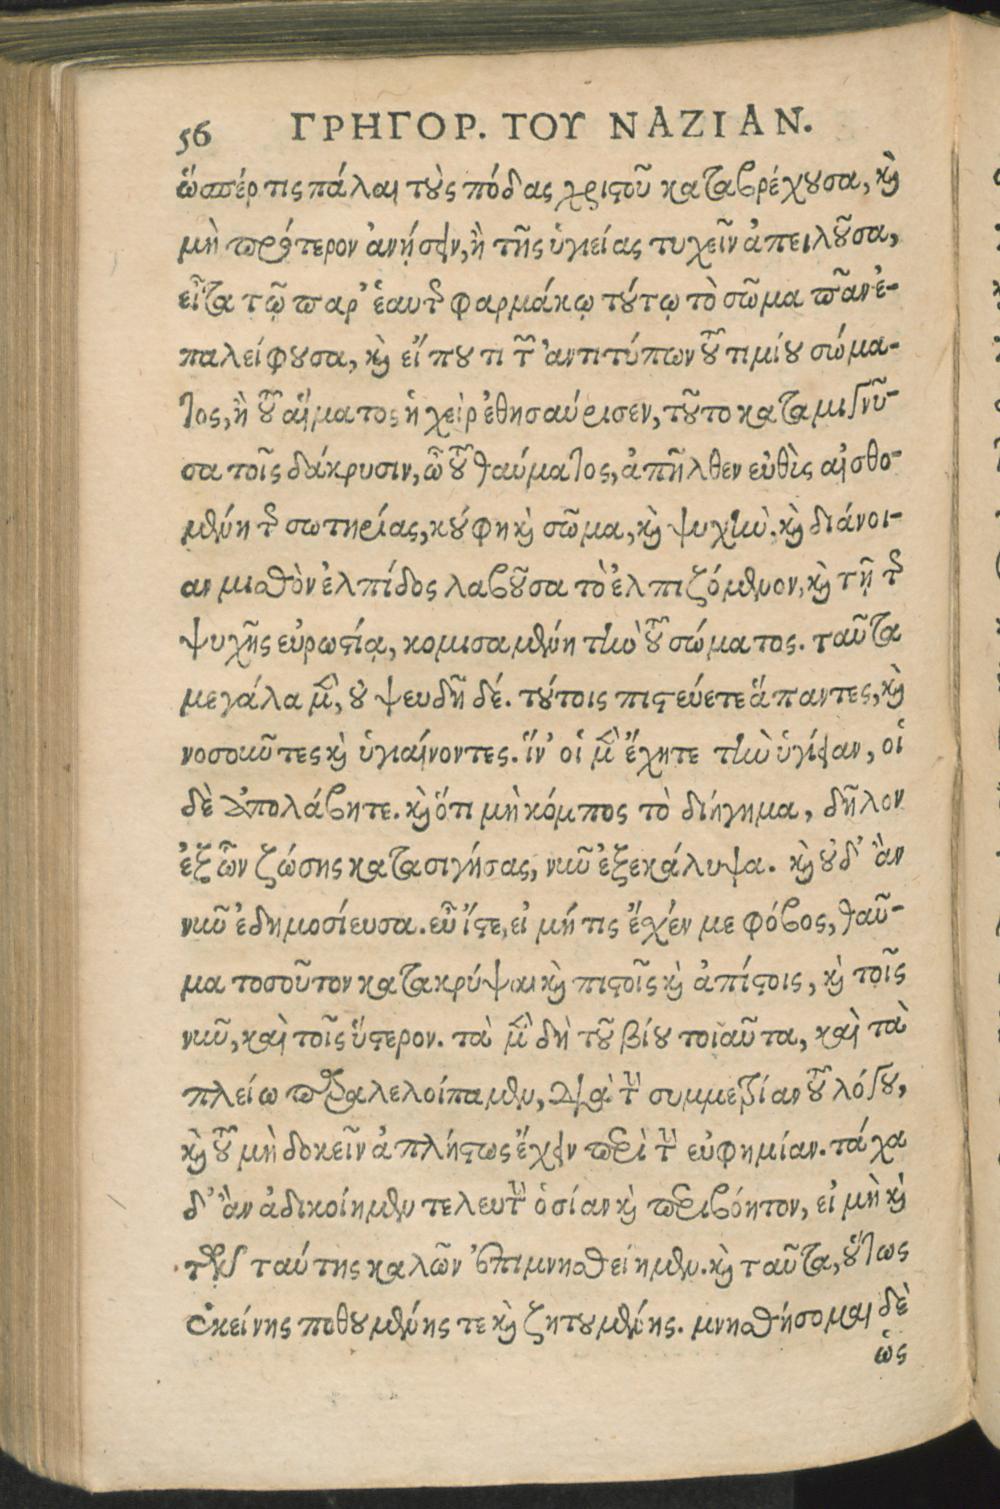 56 ΓΡΗΓΟΡ. ΤΟΥ ΝΑΖΙΑΝ.
ὥσπέρ τις πάλαι τοὺς πόδας χριστοῦ καταβρέχουσα, καὶ
μὴ πρότερον ἀνήσειν, ἢ τῆς ὑγιείας τυχεῖν ἀπειλοῦσα,
εἶτα τῷ παρ' ἑαυτῆς φαρμάκῳ τούτῳ τὸ σῶμα πᾶν ἐ-
παλείφουσα, καὶ εἴ που τι τῶν ἀντιτύπων τοῦ τιμίου σώμα-
τος, ἢ τοῦ αἵματος ἡ χεὶρ ἐθησαύρισεν, τοῦτο καταμιγνῦ-
σα τοῖς δάκρυσιν, ὢ τοῦ θαύματος, ἀπῆλθεν εὐθὺς αἰσθο-
μένη τῆς σωτηρίας, κούφη καὶ σῶμα, καὶ ψυχὴν. καὶ διάνοι-
αν μισθὸν ἐλπίδος λαβοῦσα τὸ ἐλπιζόμενον, καὶ τῇ τῆς
ψυχῆς εὐρωστίᾳ, κομισαμένη τὴν τοῦ σώματος. ταῦτα
μεγάλα μὲν, οὐ ψευδῆ δέ. τούτοις πιστεύετε ἅπαντες, καὶ
νοσοῦντες καὶ ὑγιαίνοντες. ἵν' οἱ μὲν ἔχητε τὴν ὑγίειαν, οἱ
δὲ ἀπολάβητε. καὶ ὅτι μὴ κόμπος τὸ διήγημα, δῆλον
ἐξ ὧν ζώσης κατασιγήσας, νῦν ἐξεκάλυψα. καὶ οὐδ' ἂν
νῦν ἐδημοσίευσα. εὖ ἴστε, εἰ μή τις ἔσχέν με φόβος, θαῦ-
μα τοσοῦτον κατακρύψαι καὶ πιστοῖς καὶ ἀπίστοις, καὶ τοῖς
νῦν, καὶ τοῖς ὕστερον. τὰ μὲν δὴ τοῦ βίου τοιαῦτα, καὶ τὰ
πλείω παραλελοίπαμεν, διὰ τὴν συμμετρίαν τοῦ λόγου,
καὶ τοῦ μὴ δοκεῖν ἀπλήστως ἔχειν περὶ τὴν εὐφημίαν. τάχα
δ' ἂν ἀδικοίημεν τελευτὴν ὁσίαν καὶ περιβόητον, εἰ μὴ καὶ
τῶν ταύτης καλῶν ἐπιμνησθείημεν. καὶ ταῦτα, οὕτως
ἐκείνης ποθουμένης τε καὶ ζητουμένης. μνησθήσομαι δὲ
ὡς